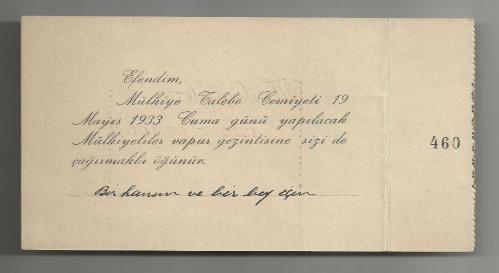 Efendim,
Mülkiye Talebe Cemiyeti 19
Mayıs 1933 Cuma günü yapılacak
Mülkiyeliler vapur gezintisine sizi de
çağırmakla öğünür.
Bir hanım ve bir bey için
460